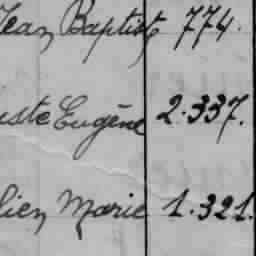 Jean Baptiste 774.
uste Eugène 2.337.
lien Marie 1.321.